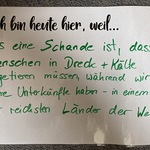 ch bin heute hier, weil...
s eine Schande ist, dass
enschen in Dreck + Kälte
getieren müssen, während wir
ne Unterkünfte haben - in einem
r reichsten Länder der We